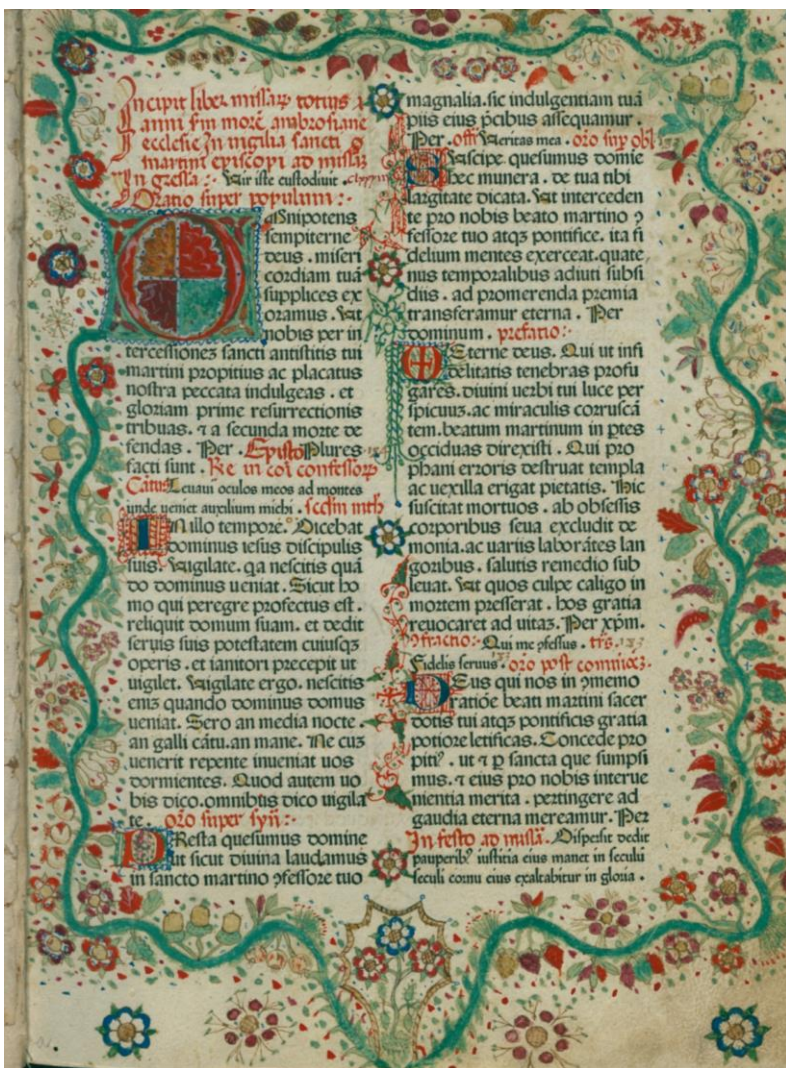 Incipit liber missarꝝ totius
anni ẜm morē ambrosiane
ecclesie In vigilia sancti
martini episcopi ad missaꝫ
Ingressa:· Vir iste custodiuit ·
Oratio super populum:·
OMnipotens
sempiterne
deus . miseri
cordiam tuā
supplices ex
oramus . Vt
nobis per in
tercessionez sancti antistitis tui
martini propitius ac placatus
nostra peccata indulgeas . et
gloriam prime resurrectionis
tribuas . ⁊ a secunda morte de
fendas . Per . Epistoᷓ Plures
facti sunt . Re in coī confessorꝝ
Cātus Leuaui oculos meos ad montes
unde ueniet auxilium michi . scᷓm mth
IN illo tempore . Dicebat
dominus iesus discipulis
suis . Vigilate . qa nescitis quā
do dominus ueniat . Sicut ho
mo qui peregre profectus est .
reliquit domum suam . et dedit
seruis suis potestatem cuiusqꝫ
operis . et ianitori precepit ut
uigilet . Vigilate ergo . nescitis
eniꝫ quando dominus domus
ueniat . Sero an media nocte .
an galli cātu . an mane . Ne cuꝫ
uenerit repente inueniat uos
dormientes . Quod autem uo
bis dico . omnibus dico uigila
te . oꝛo super syn̄:·
PResta quesumus domine
ut sicut diuina laudamus
in sancto martino ꝯfessore tuo
magnalia . sic indulgentiam tuā
piis eius p̄cibus assequamur .
Per . off̄ Veritas mea . oꝛo suꝑ obl̄
SVscipe quesumus domie
hec munera . de tua tibi
largitate dicata . Vt interceden
te pro nobis beato martino ꝯ
fessore tuo atqꝫ pontifice . ita fi
delium mentes exerceat . quate
nus temporalibus adiuti subsi
diis . ad promerenda premia
transferamur eterna . Per
dominum . prefatio:·
Eterne deus . Qui ut infi
delitatis tenebras profu
gares . diuini uerbi tui luce per
spicuuꝫ . ac miraculis corruscā
tem . beatum martinum in ꝑtes
occiduas direxisti . Qui pro
phani erroris destruat templa
ac uexilla erigat pietatis . Hic
suscitat mortuos . ab obsessis
corporibus seua excludit de
monia . ac uariis laborātes lan
goribus . salutis remedio sub
leuat . Vt quos culpe caligo in
mortem presserat . hos gratia
reuocaret ad uitaꝫ . Per xp̄m .
ꝯfractio:· Qui me ꝯfessus . trs̄ .
Fidelis seruus . oꝛo post comuioꝫ:·
DEus qui nos in ꝯmemo
ratiōe beati martini sacer
dotis tui atqꝫ pontificis gratia
potiore letificas . Concede pro
pitiꝰ . ut ⁊ ꝑ sancta que sumpsi
mus . ⁊ eius pro nobis interue
nientia merita . pertingere ad
gaudia eterna mereamur . Per
In festo ad missā . Dispersit dedit
pauperibꝫ iustitia eius manet in seculū
seculi cornu eius exaltabitur in gloria .